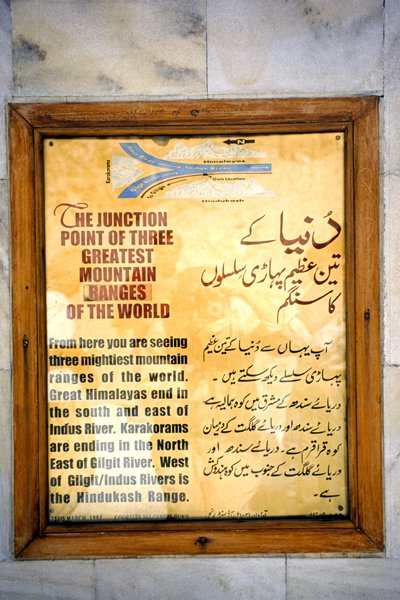 N
Himalayas
Indus River
Karakorams
Gilgit River
To Gilgit
Own Location
Hindukash
THE JUNCTION
POINT OF THREE
GREATEST
MOUNTAIN
RANGES
OF THE WORLD
From here you are seeing
three mightiest mountain
ranges of the world.
Great Himalayas end in
the south and east of
Indus River. Karakorams
are ending in the North
East of Gilgit River. West
of Gilgit/Indus Rivers is
the Hindukash Range.
دُنیا کے
تین عظیم پہاڑی سلسلوں
کا سنگم
آپ یہاں سے دُنیا کے تین عظیم
پہاڑی سلسلے دیکھ سکتے ہیں ۔
دریائے سندھ کے مشرق میں کوہ ہمالیہ ہے
دریائے سندھ اور دریائے گلگت کے درمیان
کوہ قراقرم ہے ۔ دریائے سندھ اور
دریائے گلگت کے جنوب میں کوہ ہندوکش
ہے ۔